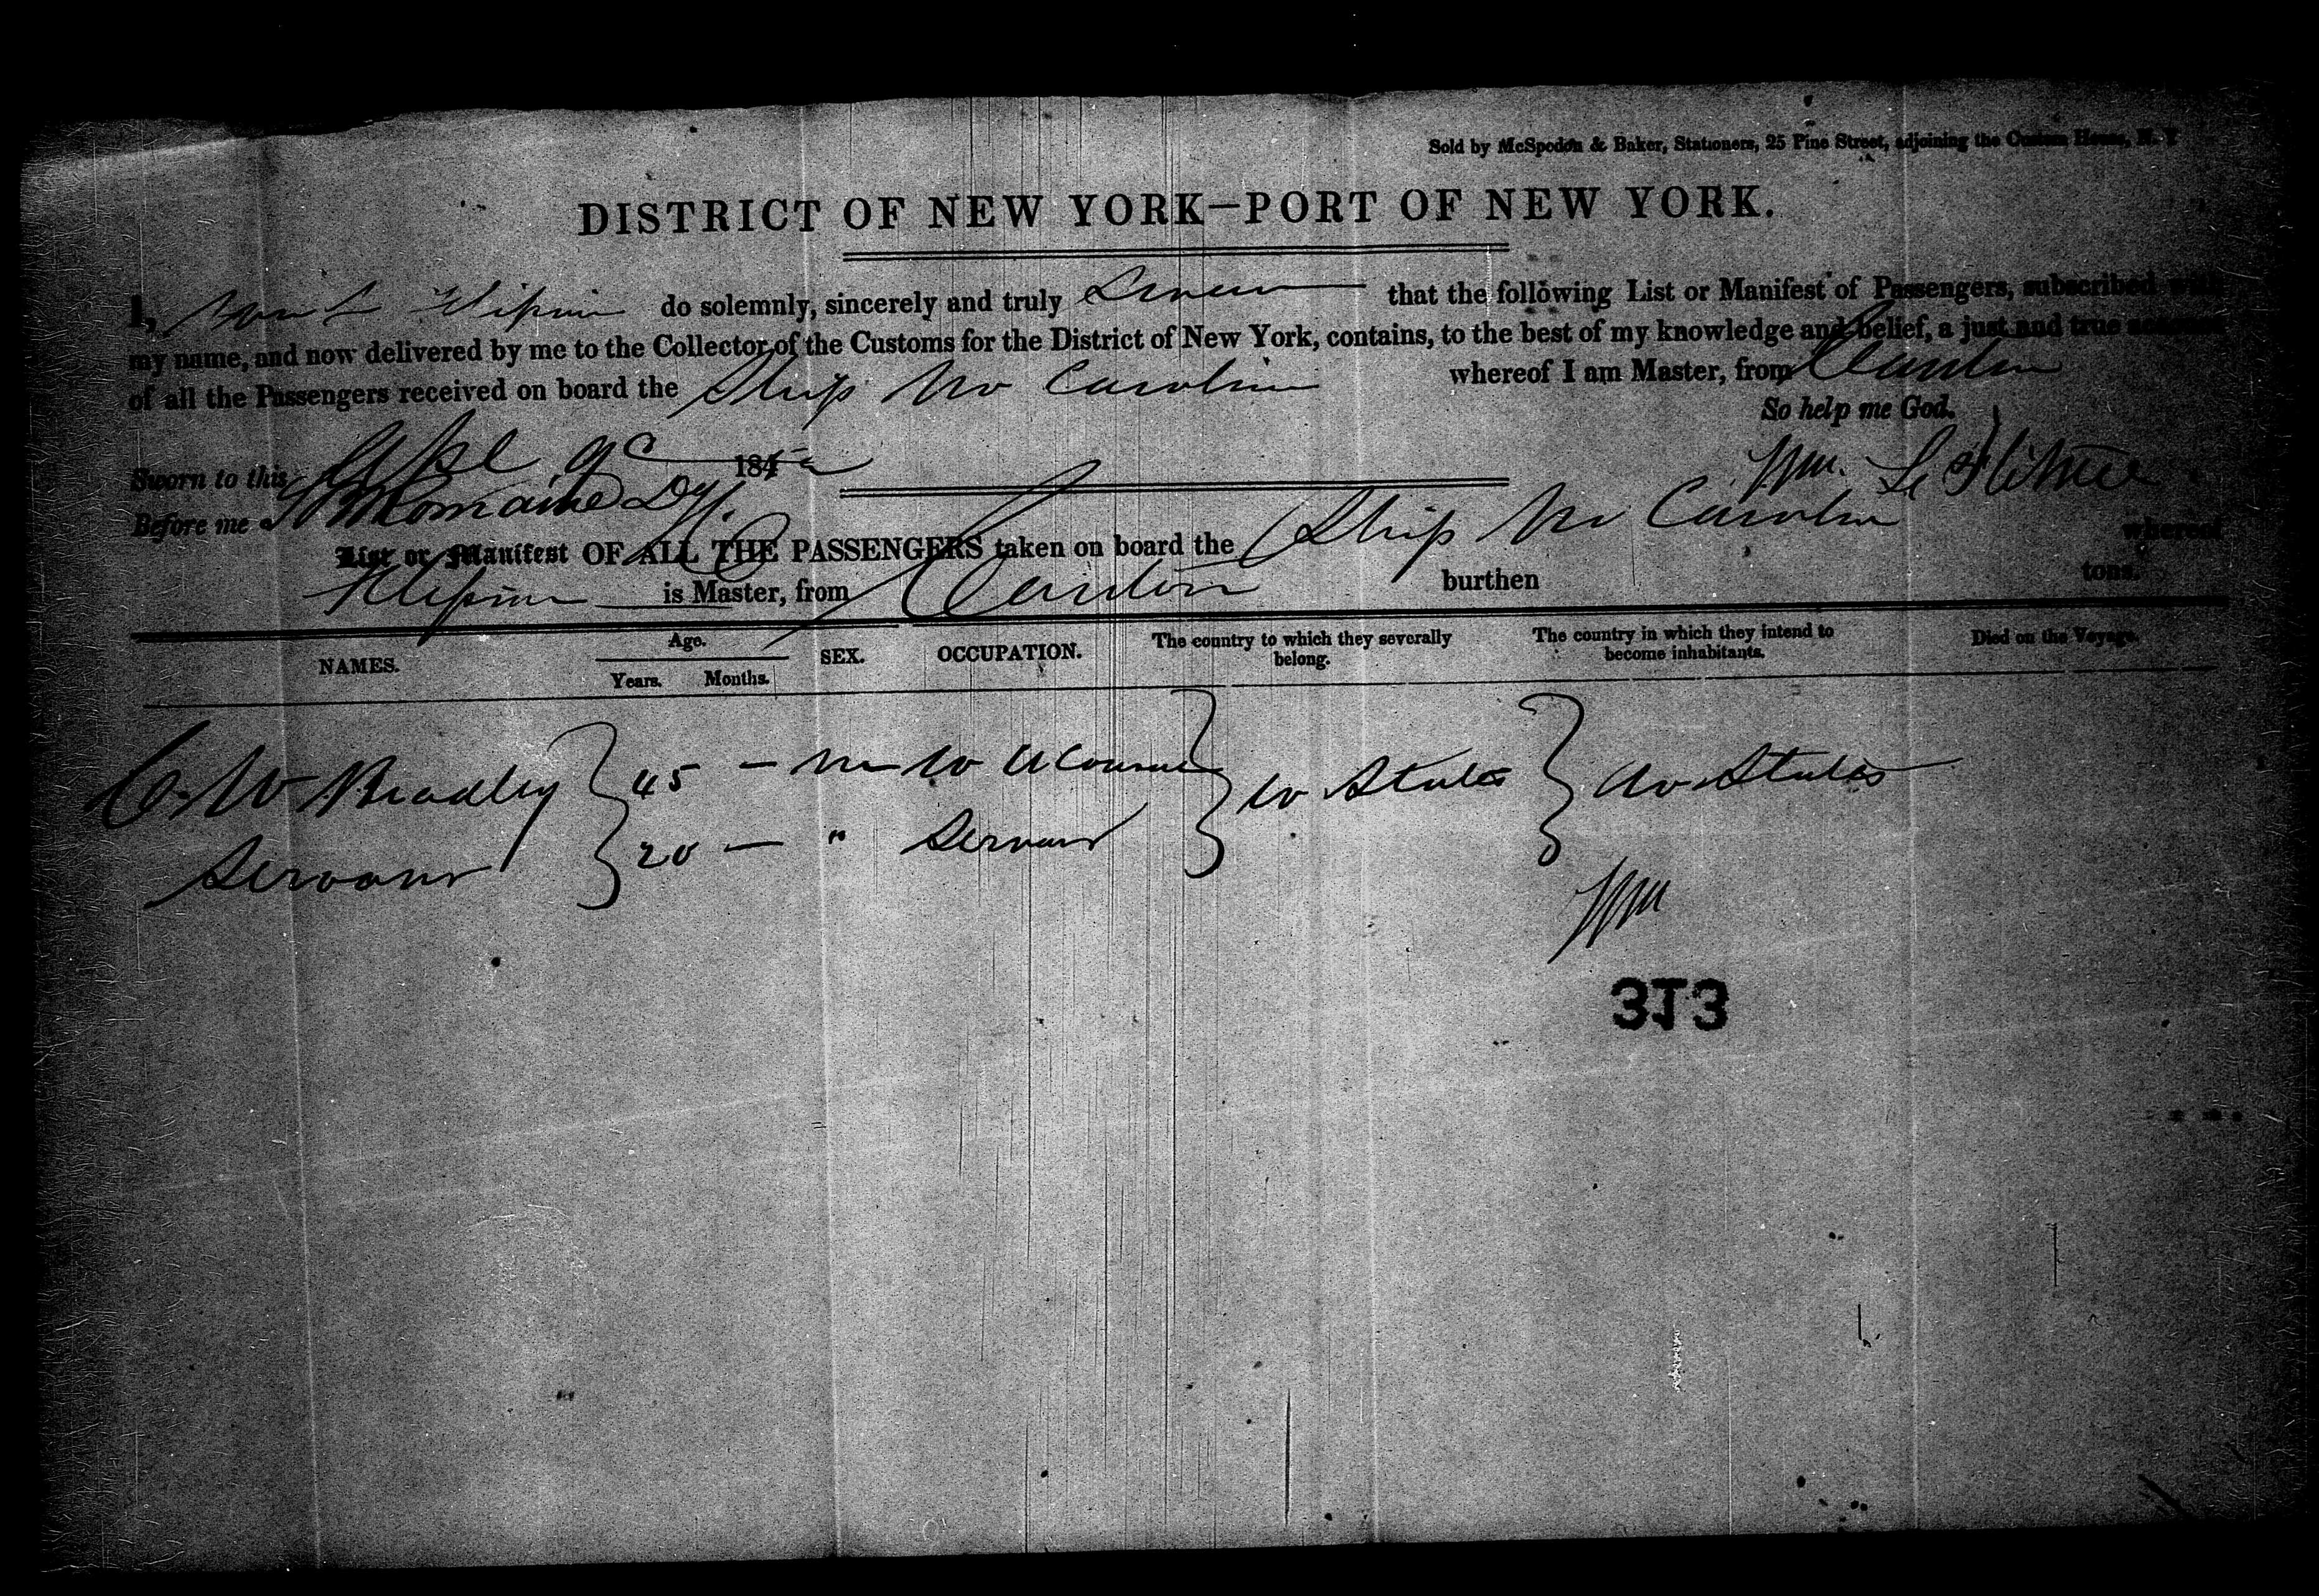 Sold by McSpedon & Baker, Stationers, 25 Pine Street, adjoining the Custom House, N. Y
DISTRICT OF NEW YORK—PORT OF NEW YORK.
I, do solemnly, sincerely and truly Swear that the following List or Manifest of Passengers, subscribed with
my name, and now delivered by me to the Collector of the Customs for the District of New York, contains, to the best of my knowledge and belief, a just and true account
of all the Passengers received on board the Ship No Carolina whereof I am Master, from Canton
So help me God.
Sworn to this 9 185
Before me Romaine Dy Wm.
List or Manifest OF ALL THE PASSENGERS taken on board the Ship No Carolina whereof
is Master, from Canton burthen tons.
NAMES. Age. Years. Months. SEX. OCCUPATION. The country to which they severally belong. The country in which they intend to become inhabitants. Died on the Voyage.
C. W Bradley 45 — m U States U States
Servant 20 — " Servant
Wm
313